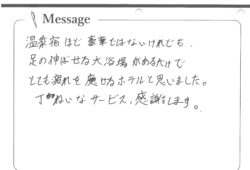 Message
温泉宿ほど豪華ではないけれども、
足の伸ばせる大浴場があるだけで
とても疲れを癒せるホテルと思いました。
丁寧ねいなサービス、感謝します。